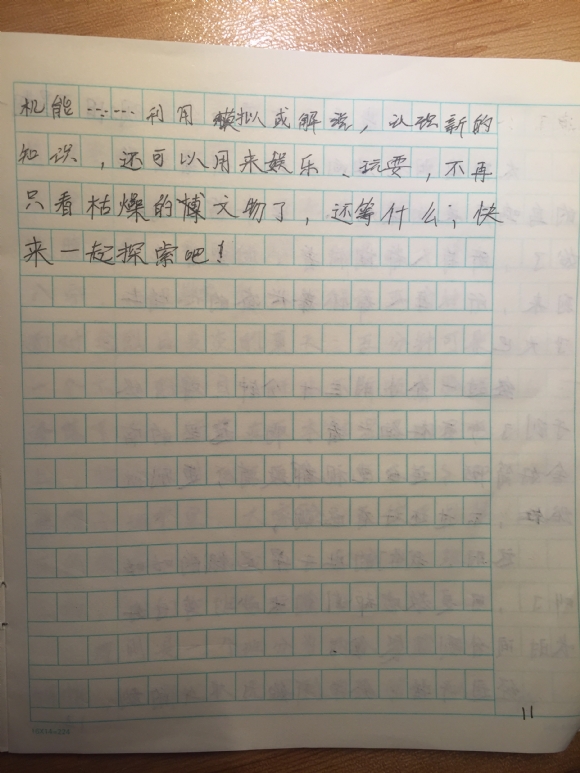 机能……利用模拟或解说，让孩新的
知识，还可以用来娱乐、玩耍，不再
只看枯燥的博文物了，还等什么，快
来一起探索吧！
11